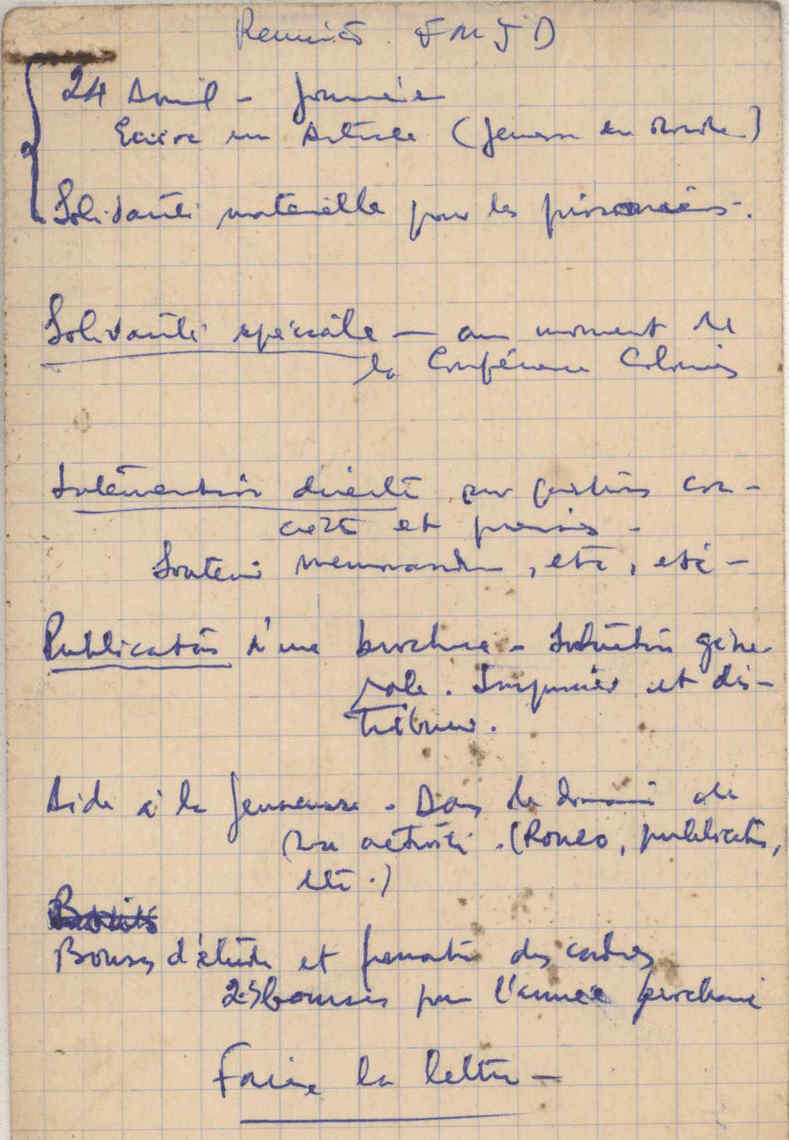 Reunião F M J D
24 Avril - Journée
Ecrire un Article (Jeunesse du Monde)
Solidarité matérielle pour les prisonniers.
Solidarité spéciale - au moment de
la Conférence Colonies
Intervention directe sur questions con-
crets et précis -
Soutenir memorandum, etc, etc -
Publication d'une brochure - Introduction géné-
rale. Imprimer et dis-
tribuer.
Aide à la jeunesse - Dans le domaine de
son activité. (Roneo, publications,
etc.)
Bourses d'étude et formation des cadres
2-3 bourses pour l'année prochaine
Faire la lettre -